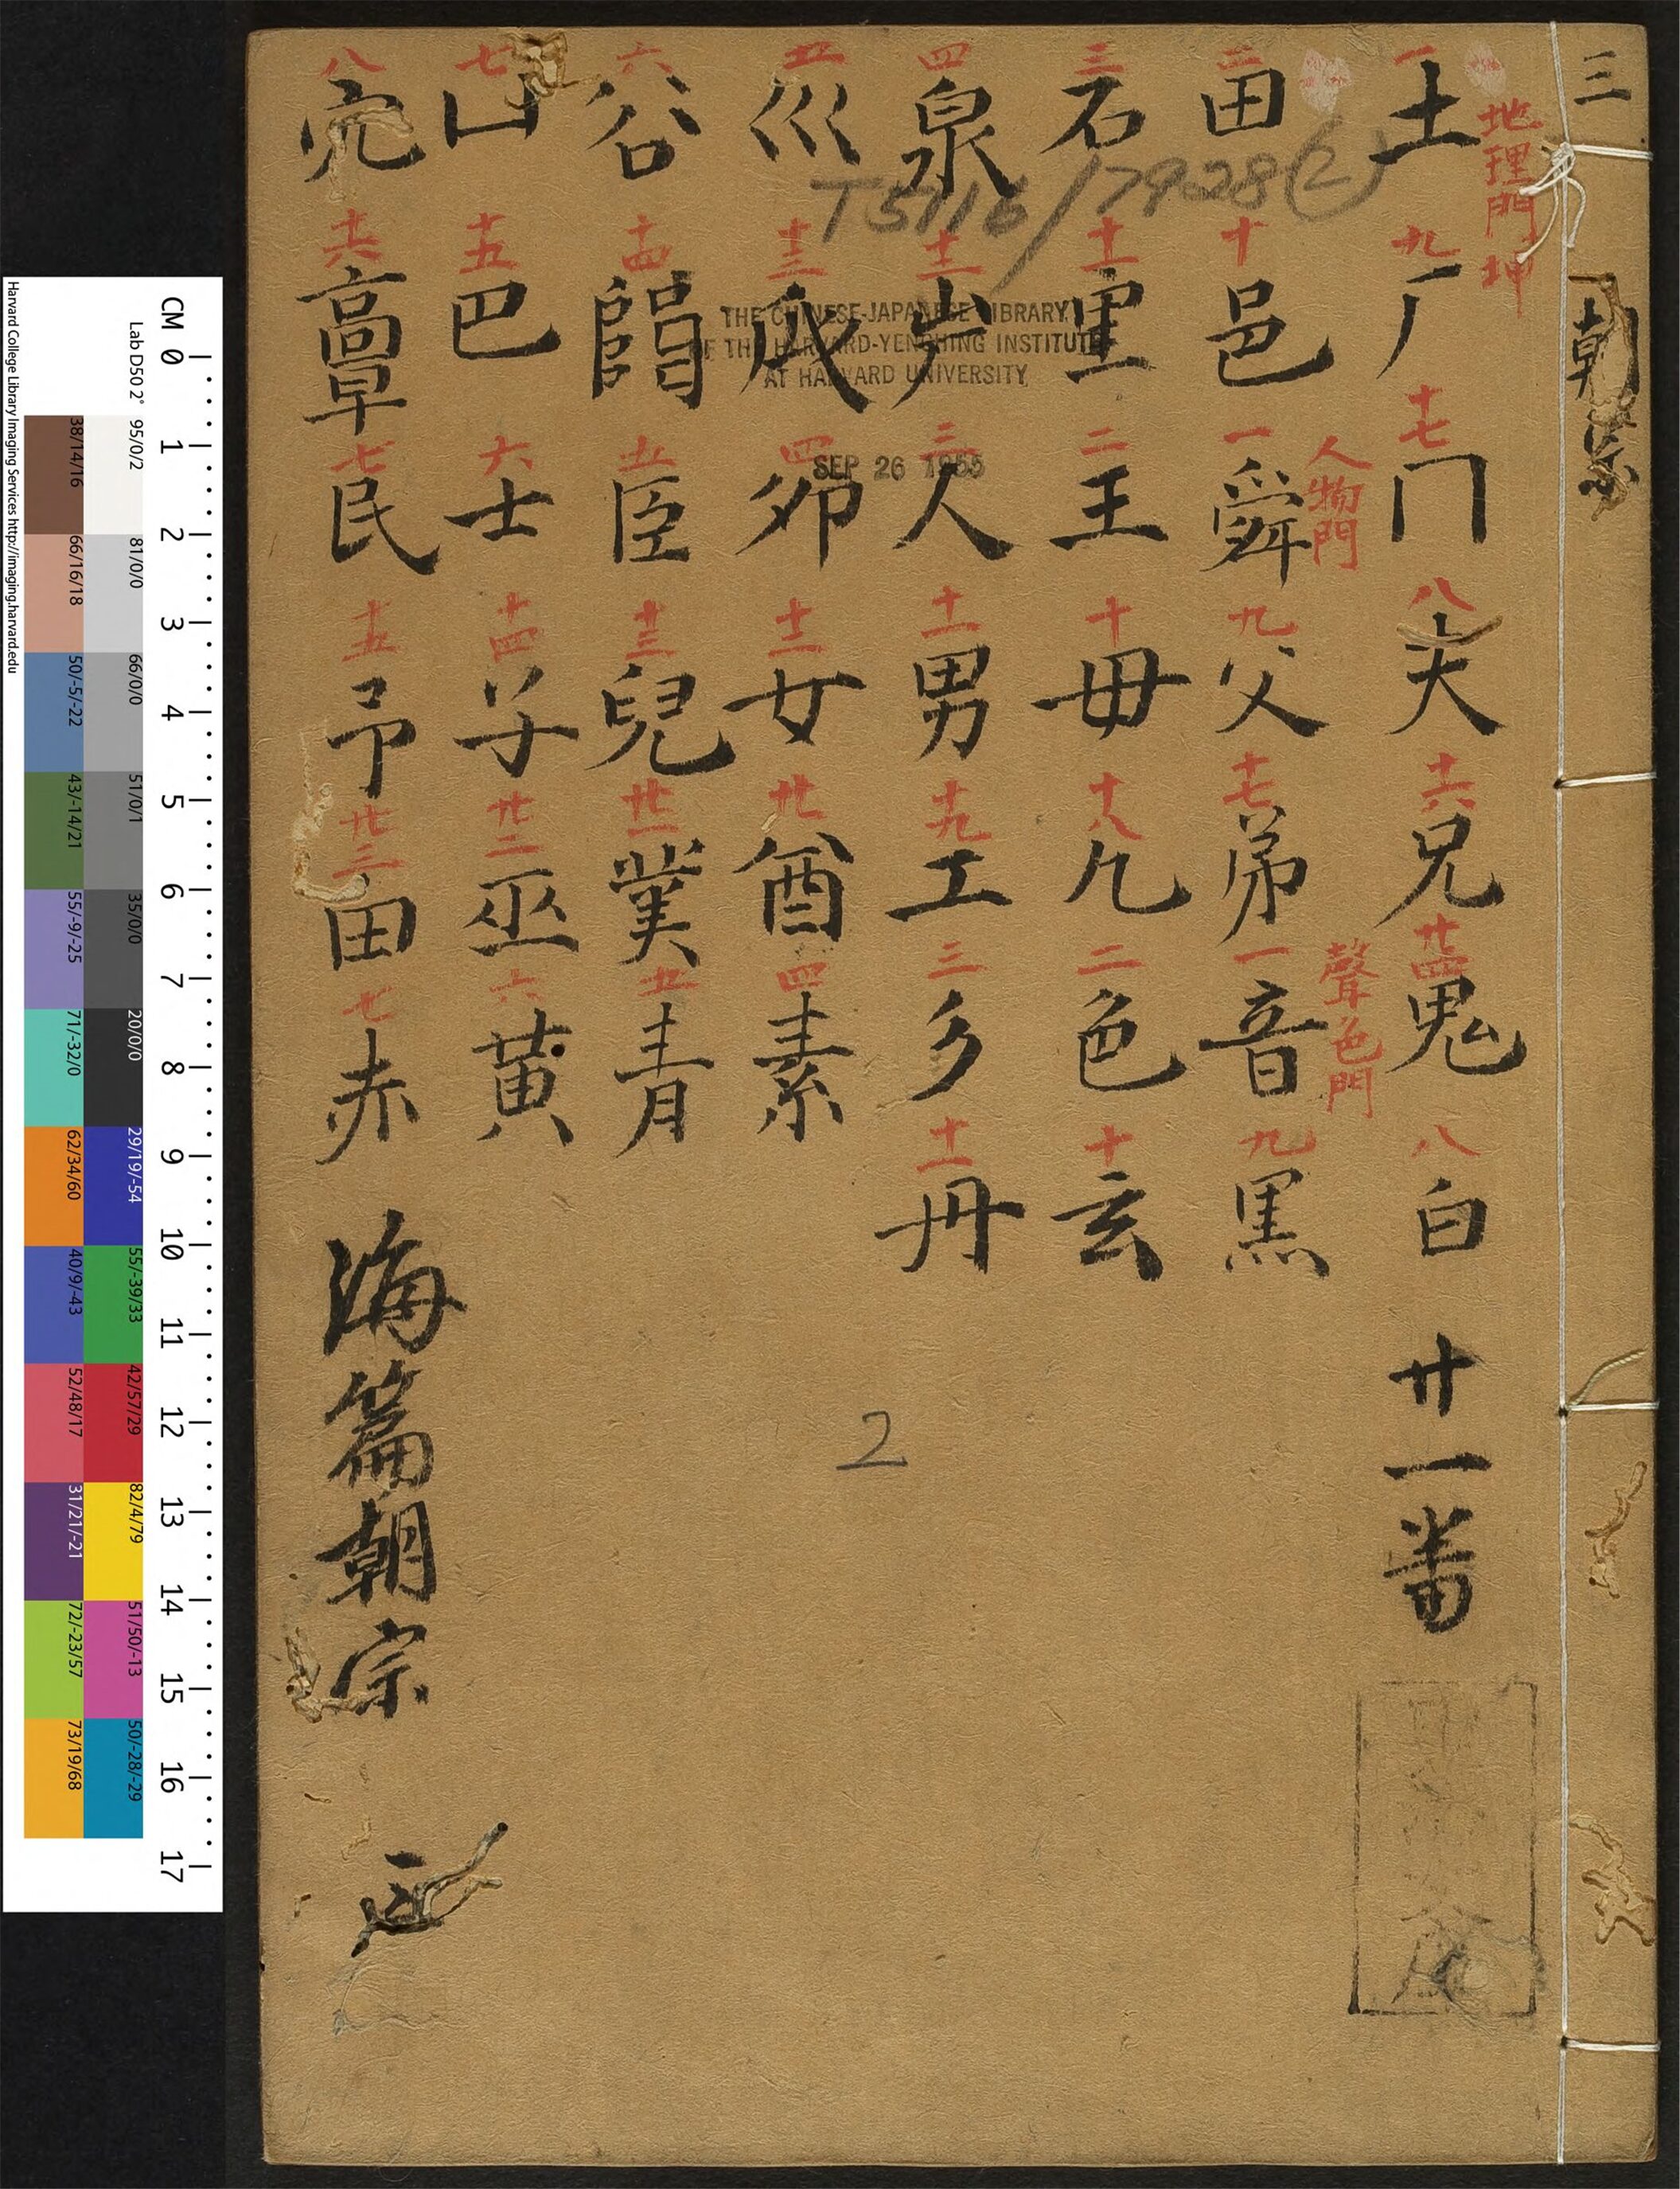 三 朝宗
地理門坤 一土 二田 三石 四泉 五巛 六谷 七山 八
九厂 十邑 十一里 十二 十三𠂢 十四𨛜 十五巴 十六
十七冂 人物門 一舜 二王 三人 四夘 五臣 六士 七民
八夫 九父 十毋 十一男 十二女 十三兒 十四子 十五予
十六兄 十七弟 十八凢 十九工 廿酋 廿一菐 廿二巫 廿三甶
廿四鬼 聲色門 一音 二色 三彡 四素 五青 六黃 七赤
八白 九黒 十玄 十一丹
廿一番
海篇朝宗
T5116/7928(2)
THE CHINESE-JAPANESE LIBRARY
OF THE HARVARD-YENCHING INSTITUTE
AT HARVARD UNIVERSITY
SEP 26 1955
2
Harvard College Library Imaging Services http://imaging.harvard.edu
Lab D50 2°
CM 0 1 2 3 4 5 6 7 8 9 10 11 12 13 14 15 16 17
95/0/2 81/0/0 66/0/0 51/0/1 35/0/0 20/0/0 29/19/-54 55/-39/33 42/57/29 82/4/79 51/50/-13 50/-28/-29
38/14/16 66/16/18 50/-5/-22 43/-14/21 55/-9/-25 71/-32/0 62/34/60 40/9/-43 52/48/17 31/21/-21 72/-23/57 73/19/68